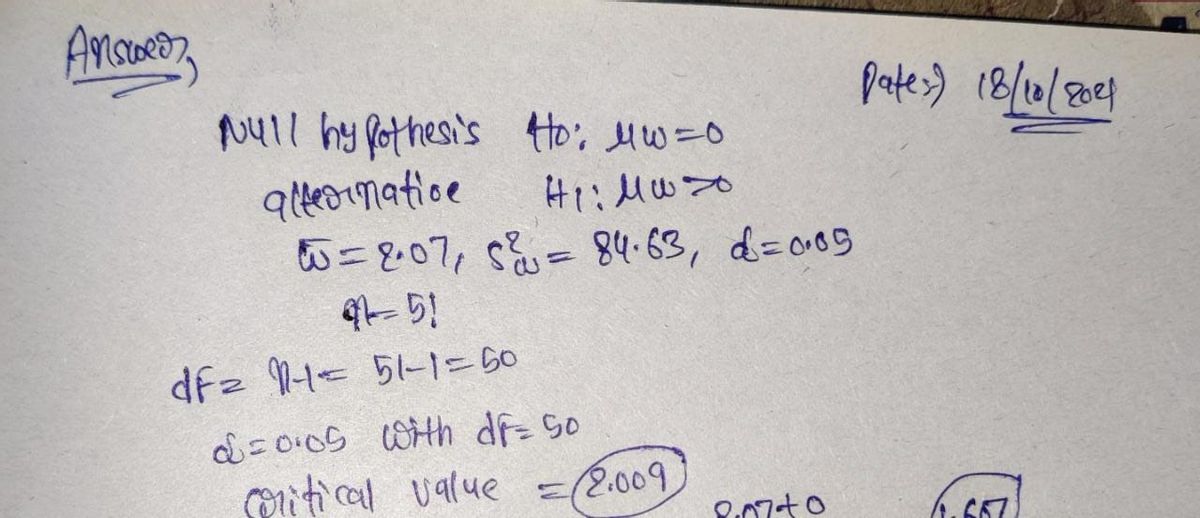 Answer,
Date:) 18/10/2021
Null hypothesis H0: μw=0
alternative H1: μw>0
w̄ = 2.07, s²w = 84.63, α=0.05
n=51
df= n-1= 51-1=50
α=0.05 with df= 50
critical value = 2.009